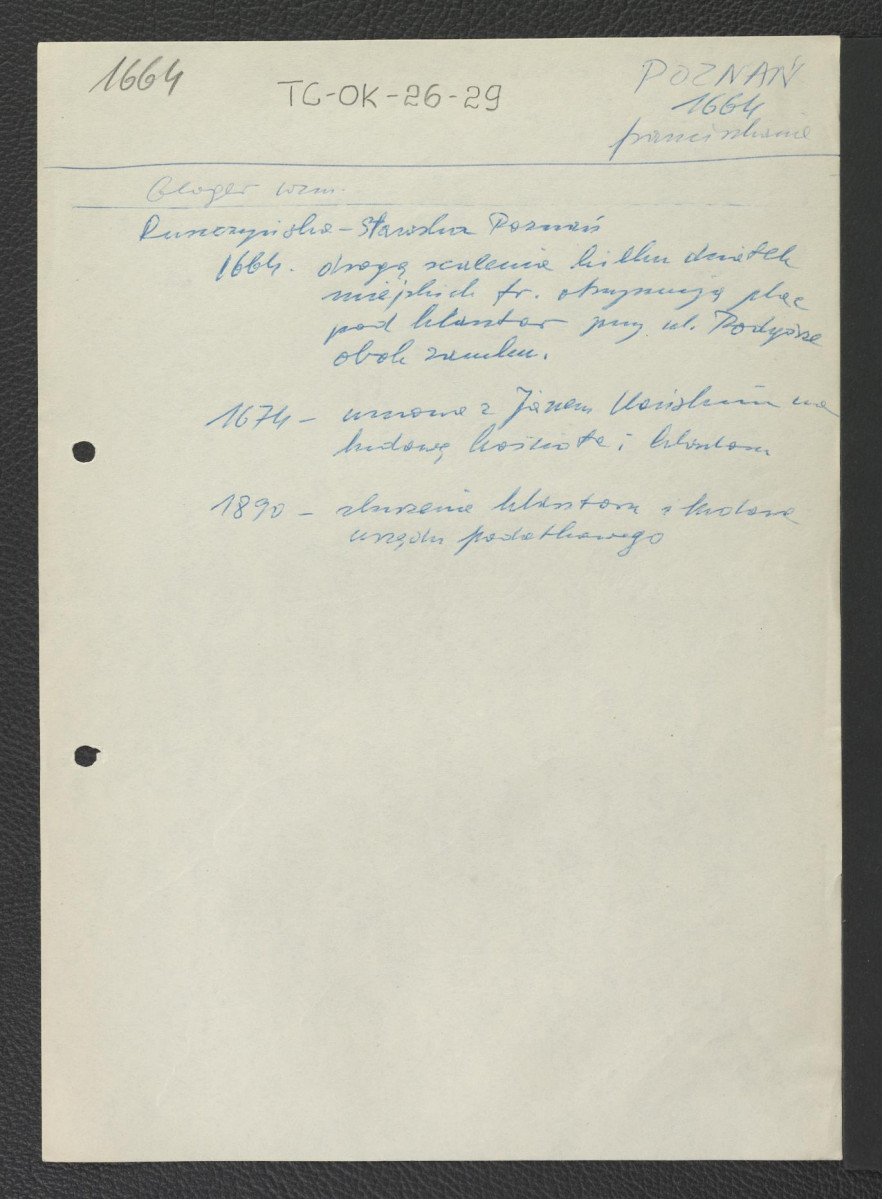 1664
TG-OK-26-29
POZNAŃ
1664
franciszkanie
Gloger wzm.
Ruszczyńska – Sławska Poznań
1664. drogą scalenia kilku działek
miejskich fr. otrzymują plac
pod klasztor przy ul. Podgórze
obok zamku.
1674 – umowa z Janem Końskim na
budowę kościoła i klasztoru
1890 – zburzenie klasztoru i budowa
urzędu podatkowego